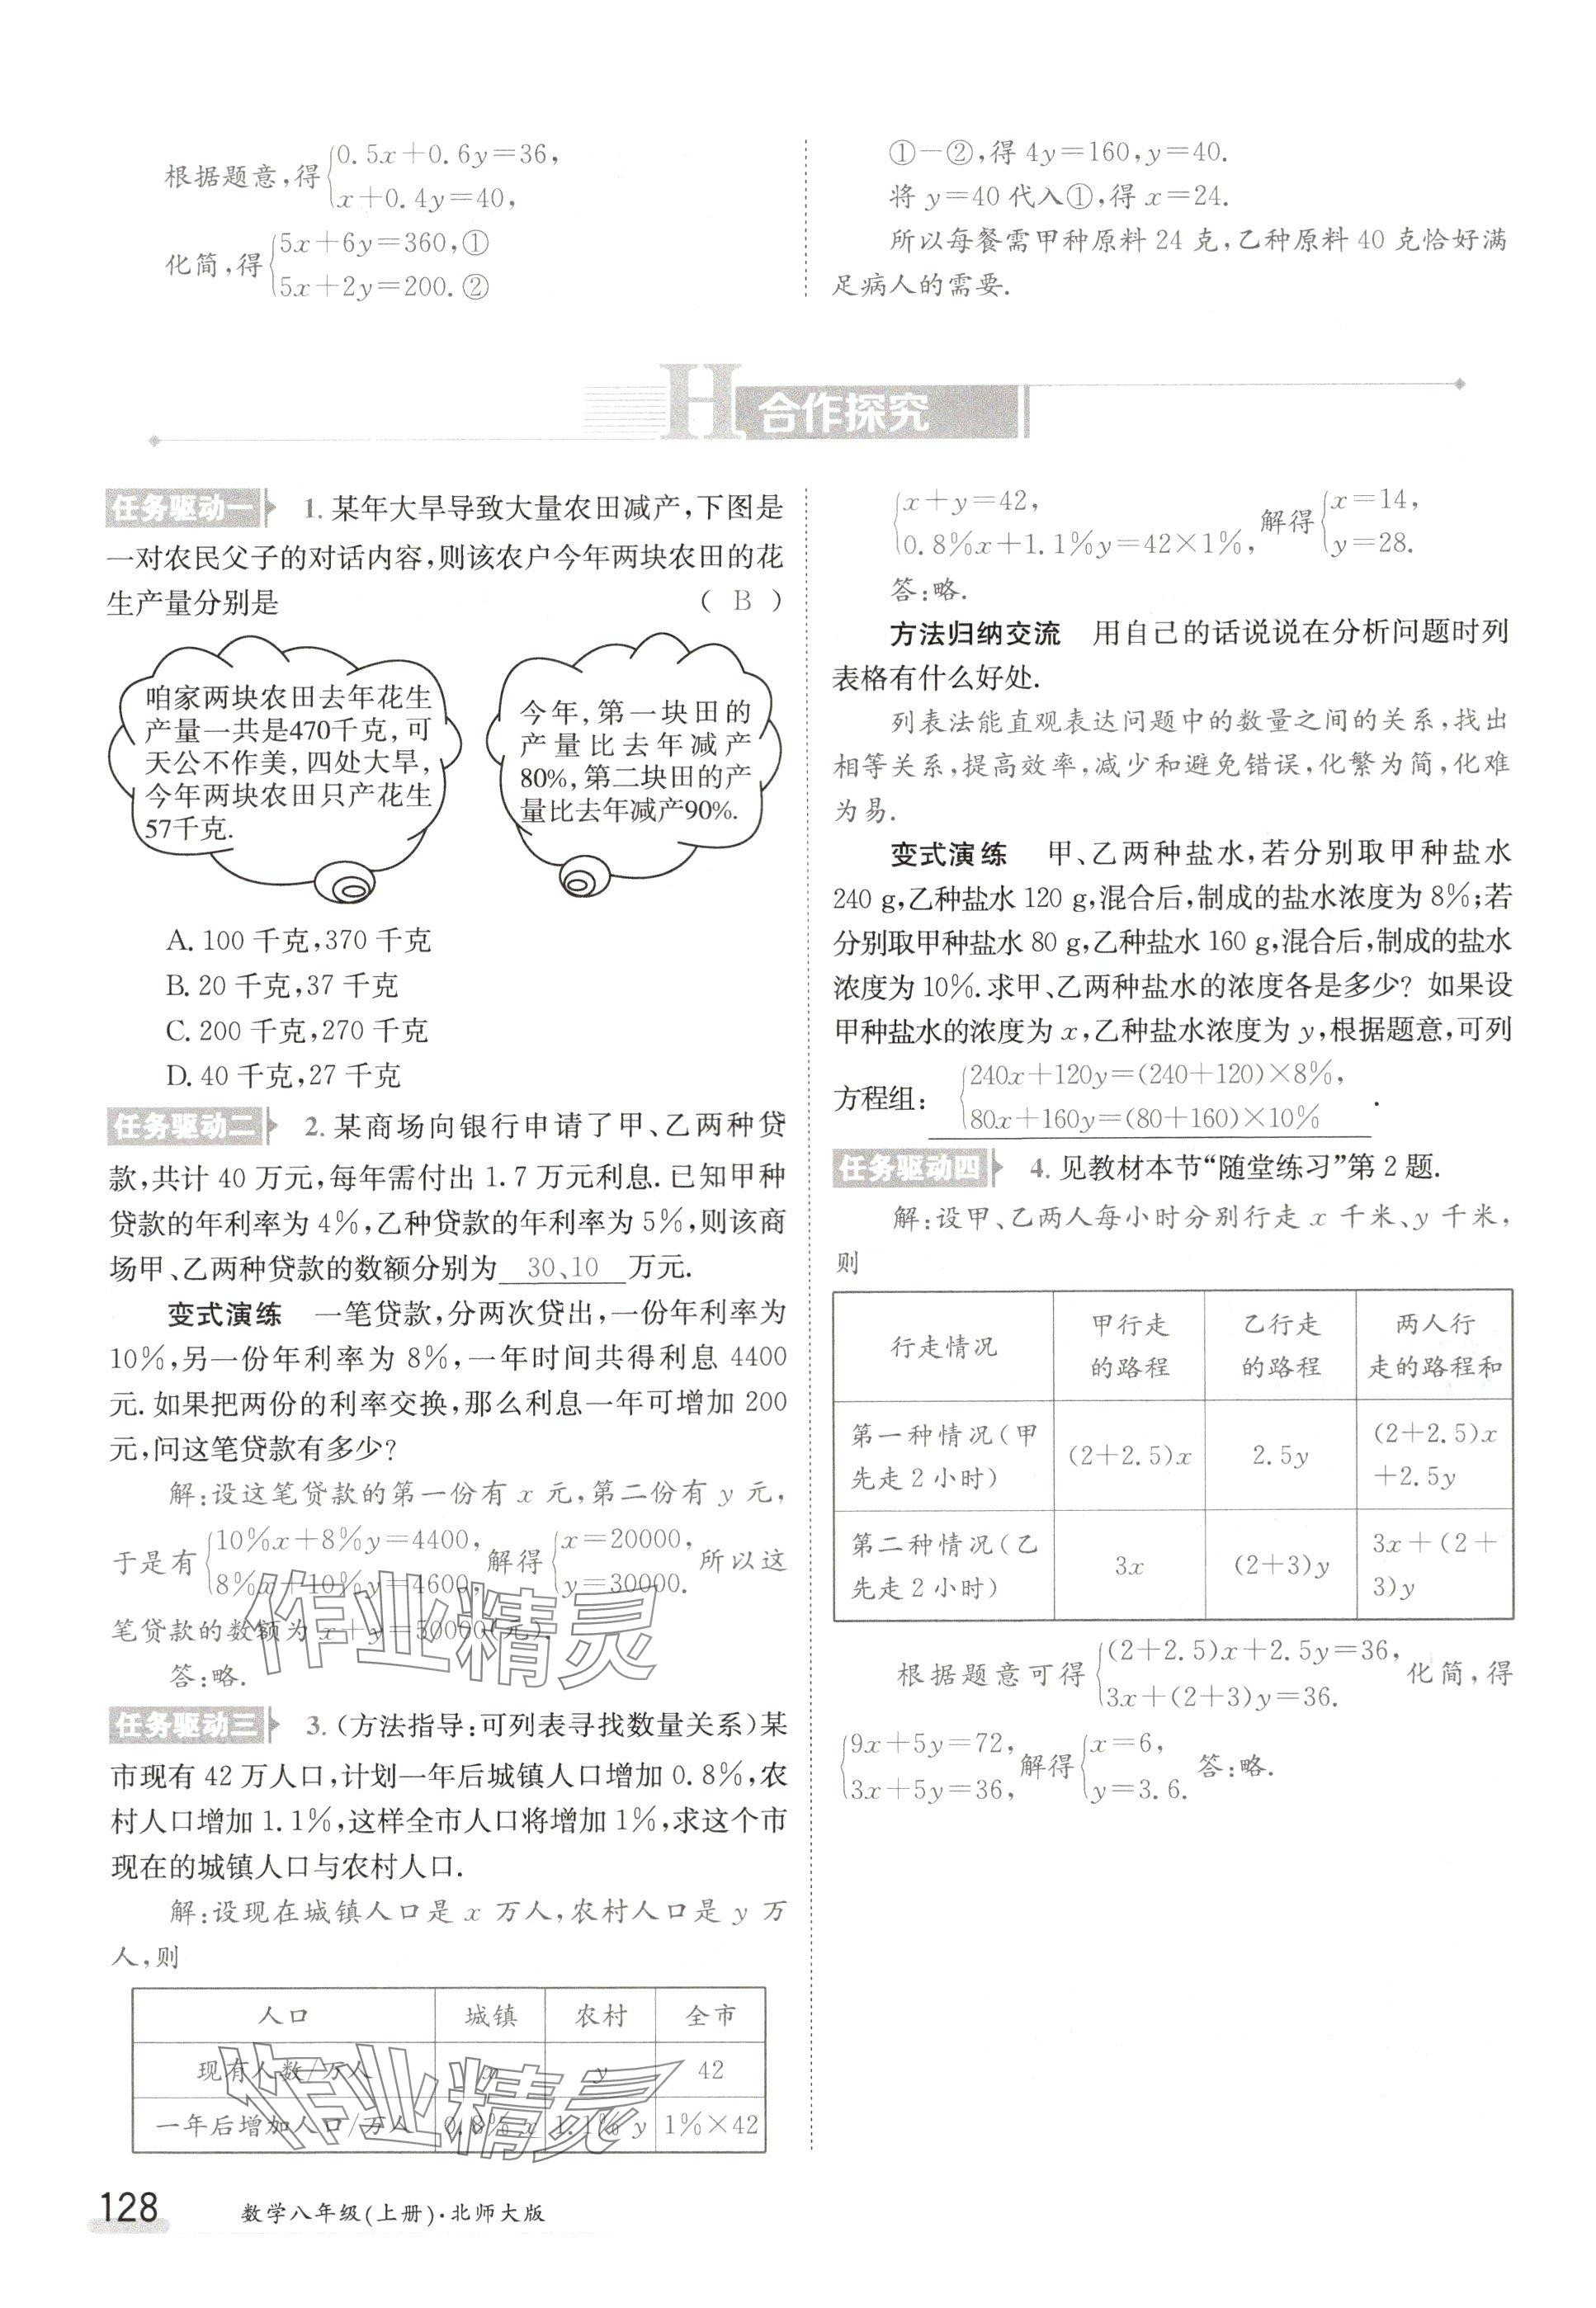 根据题意,得{0.5x+0.6y=36,
x+0.4y=40,
化简,得{5x+6y=360,①
5x+2y=200.②
①-②,得 4y=160,y=40.
将 y=40 代入①,得 x=24.
所以每餐需甲种原料 24 克,乙种原料 40 克恰好满
足病人的需要.
H 合作探究
任务驱动一 1. 某年大旱导致大量农田减产,下图是
一对农民父子的对话内容,则该农户今年两块农田的花
生产量分别是 ( B )
咱家两块农田去年花生
产量一共是470千克,可
天公不作美,四处大旱,
今年两块农田只产花生
57千克.
今年,第一块田的
产量比去年减产
80%,第二块田的产
量比去年减产90%.
A. 100 千克,370 千克
B. 20 千克,37 千克
C. 200 千克,270 千克
D. 40 千克,27 千克
任务驱动二 2. 某商场向银行申请了甲、乙两种贷
款,共计 40 万元,每年需付出 1.7 万元利息. 已知甲种
贷款的年利率为 4%,乙种贷款的年利率为 5%,则该商
场甲、乙两种贷款的数额分别为 30、10 万元.
变式演练 一笔贷款,分两次贷出,一份年利率为
10%,另一份年利率为 8%,一年时间共得利息 4400
元. 如果把两份的利率交换,那么利息一年可增加 200
元,问这笔贷款有多少?
解:设这笔贷款的第一份有 x 元,第二份有 y 元,
于是有{10%x+8%y=4400, 解得{x=20000, 所以这
8%x+10%y=4600, y=30000.
笔贷款的数额为 x+y=50000(元).
答:略.
任务驱动三 3. (方法指导:可列表寻找数量关系)某
市现有 42 万人口,计划一年后城镇人口增加 0.8%,农
村人口增加 1.1%,这样全市人口将增加 1%,求这个市
现在的城镇人口与农村人口.
解:设现在城镇人口是 x 万人,农村人口是 y 万
人,则
人口 城镇 农村 全市
现有人数/万人 x y 42
一年后增加人口/万人 0.8% x 1.1% y 1%×42
{x+y=42, 解得{x=14,
0.8%x+1.1%y=42×1%, y=28.
答:略.
方法归纳交流 用自己的话说说在分析问题时列
表格有什么好处.
列表法能直观表达问题中的数量之间的关系,找出
相等关系,提高效率,减少和避免错误,化繁为简,化难
为易.
变式演练 甲、乙两种盐水,若分别取甲种盐水
240 g,乙种盐水 120 g,混合后,制成的盐水浓度为 8%;若
分别取甲种盐水 80 g,乙种盐水 160 g,混合后,制成的盐水
浓度为 10%. 求甲、乙两种盐水的浓度各是多少? 如果设
甲种盐水的浓度为 x,乙种盐水浓度为 y,根据题意,可列
方程组: {240x+120y=(240+120)×8%,
80x+160y=(80+160)×10% .
任务驱动四 4. 见教材本节“随堂练习”第 2 题.
解:设甲、乙两人每小时分别行走 x 千米、y 千米,
则
行走情况 甲行走的路程 乙行走的路程 两人行走的路程和
第一种情况(甲先走 2 小时) (2+2.5)x 2.5y (2+2.5)x+2.5y
第二种情况(乙先走 2 小时) 3x (2+3)y 3x+(2+3)y
根据题意可得{(2+2.5)x+2.5y=36, 化简,得
3x+(2+3)y=36.
{9x+5y=72, 解得{x=6, 答:略.
3x+5y=36, y=3.6.
作业精灵
作业精灵
128 数学八年级(上册)·北师大版